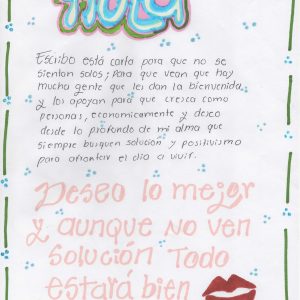 Hola
Escribo está carta para que no se
sientan solos; Para que vean que hay
mucha gente que les dan la bienvenida,
y los apoyan para que cresca como
personas, economicamente y deseo
desde lo profundo de mi alma que
siempre busquen solución y positivismo
para afrontar el día a vivir.
Deseo lo mejor
y aunque no ven
solución Todo
estará bien